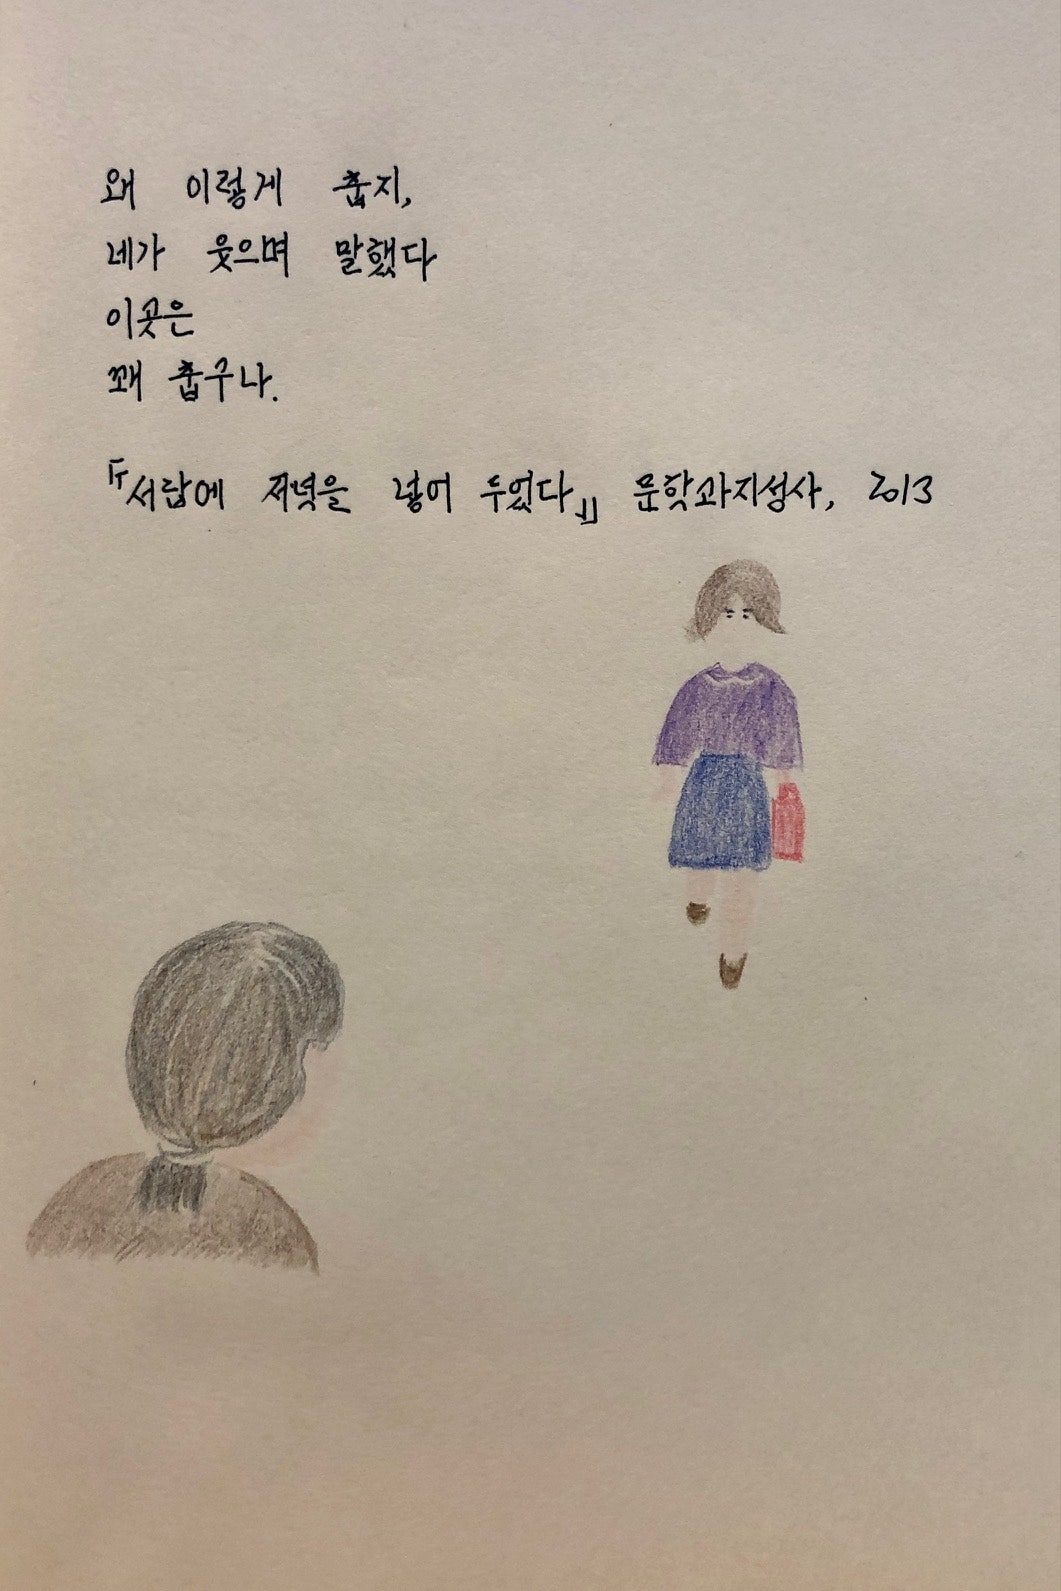 왜 이렇게 춥지,
네가 웃으며 말했다
이곳은
꽤 춥구나.
『서랍에 저녁을 넣어 두었다』 문학과지성사, 2013